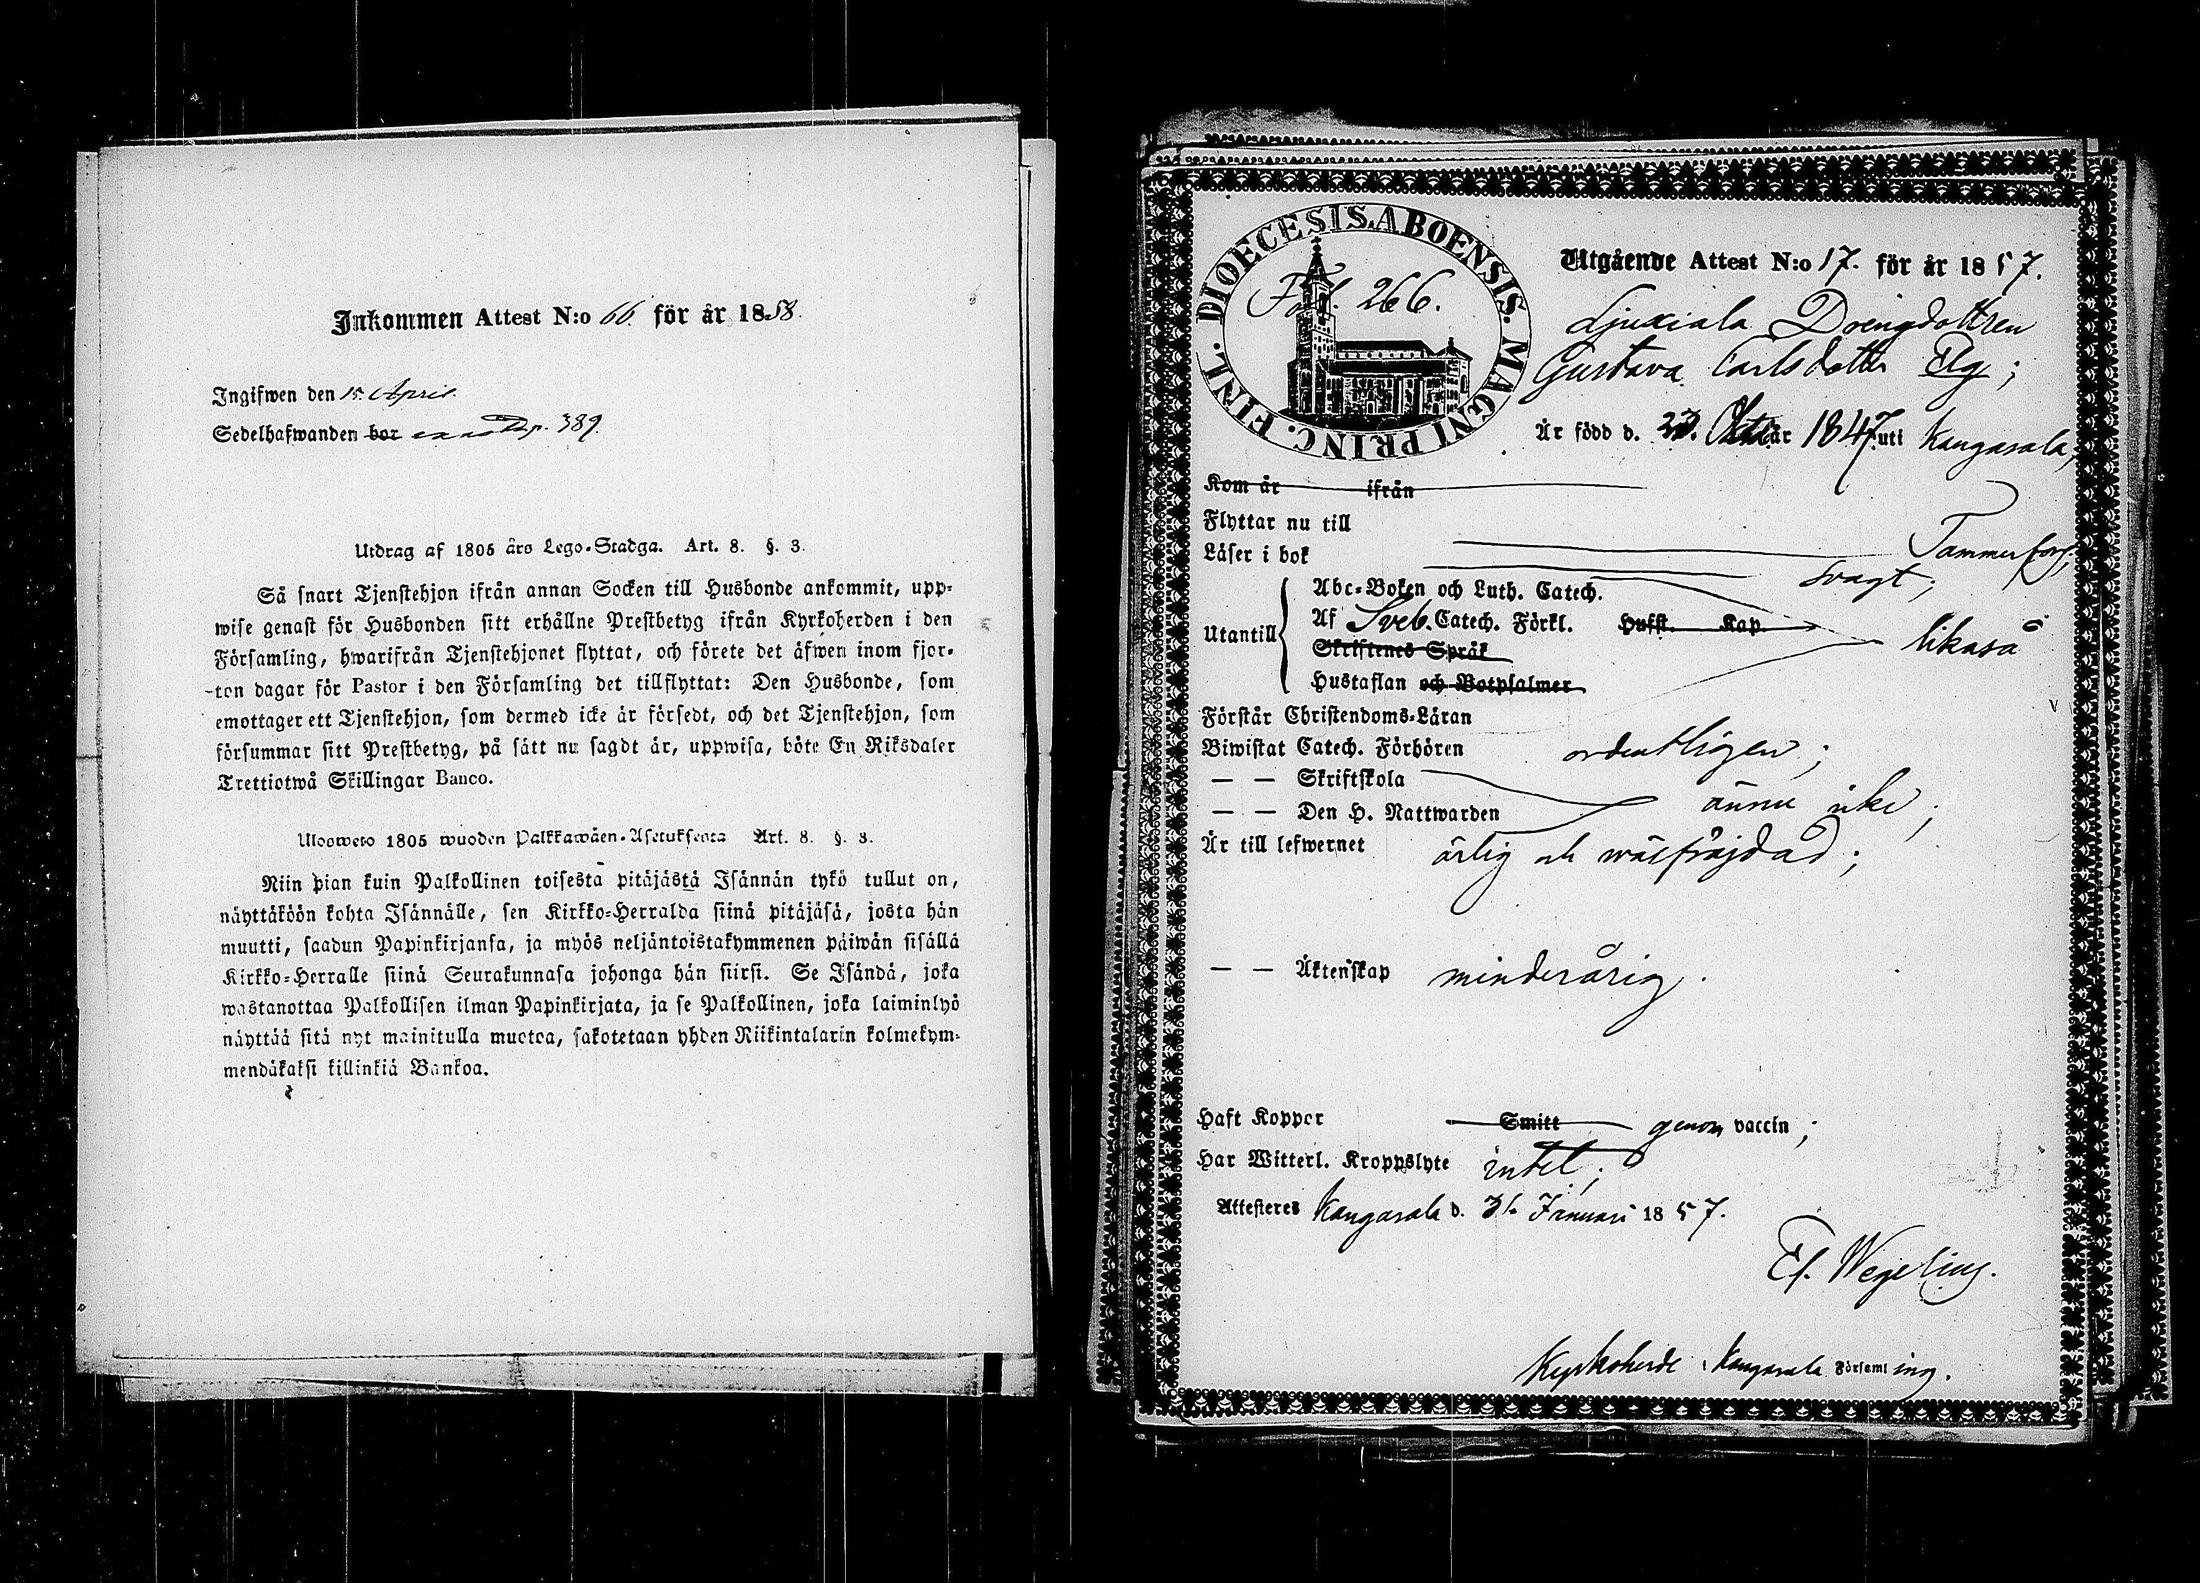 Inkommen Attest N:o 66. för år 1858.
Ingifwen den 15 April.
Sedelhafwanden bor p. 389.
Utdrag af 1805 års Lego-Stadga. Art. 8. §. 3.
Så snart Tjenstehjon ifrån annan Socken till Husbonde ankommit, upp-
wise genast för Husbonden sitt erhållne Prestbetyg ifrån Kyrkoherden i den
Församling, hwarifrån Tjenstehjonet flyttat, och förete det äfwen inom fjor-
ton dagar för Pastor i den Församling det tillflyttat: Den Husbonde, som
emottager ett Tjenstehjon, som dermed icke är försedt, och det Tjenstehjon, som
försummar sitt Prestbetyg, på sätt nu sagdt är, uppwisa, böte En Riksdaler
Trettiotwå Skillingar Banco.
Uloswето 1805 wuoden Palkkawäen-Asetuksesta Art. 8. §. 3.
Niin pian kuin Palkollinen toisesta pitäjästä Isännän tykö tullut on,
näyttäköön kohta Isännälle, sen Kirkko-Herralda siinä pitäjäsä, josta hän
muutti, saadun Papinkirjansa, ja myös neljäntoistakymmenen päiwän sisällä
Kirkko-Herralle siinä Seurakunnasa johonga hän siirsi. Se Isändä, joka
wastanottaa Palkollisen ilman Papinkirjata, ja se Palkollinen, joka laiminlyö
näyttää sitä nyt mainitulla muotoa, sakotetaan yhden Riikintalarin kolmekym-
mendäkaksi killinkiä Bankoa.
DIOECESIS. ABOENSIS. MAGNI PRINC. FINL.
Fol. 266.
Utgående Attest N:o 17. för år 1857.
Ljuxiala Drengdottren
Gustava Carlsdotter Elg;
Är född d. 23. Okt. år 1847. uti Kangasala,
Kom år ifrån
Flyttar nu till Tammerfors;
Läser i bok svagt;
Utantill
Abc-Boken och Luth. Catech.
Af Sveb. Catech. Förkl. Hufst. Kap.
Skriftenes Språk
Hustaflan och Botpsalmer
likaså
Förstår Christendoms-Läran
Biwistat Catech. Förhören ordentligen;
— — Skriftskola
— — Den H. Nattwarden
ännu icke;
Är till lefwernet ärlig och wälfräjdad;
— — Äktenskap minderårig.
Haft Koppor Smitt genom vaccin;
Har Witterl. Kroppslyte intet;
Attesteres Kangasala d. 31. Januari 1857.
Wegelius.
Kyrkoherde i Kangasala Församling.